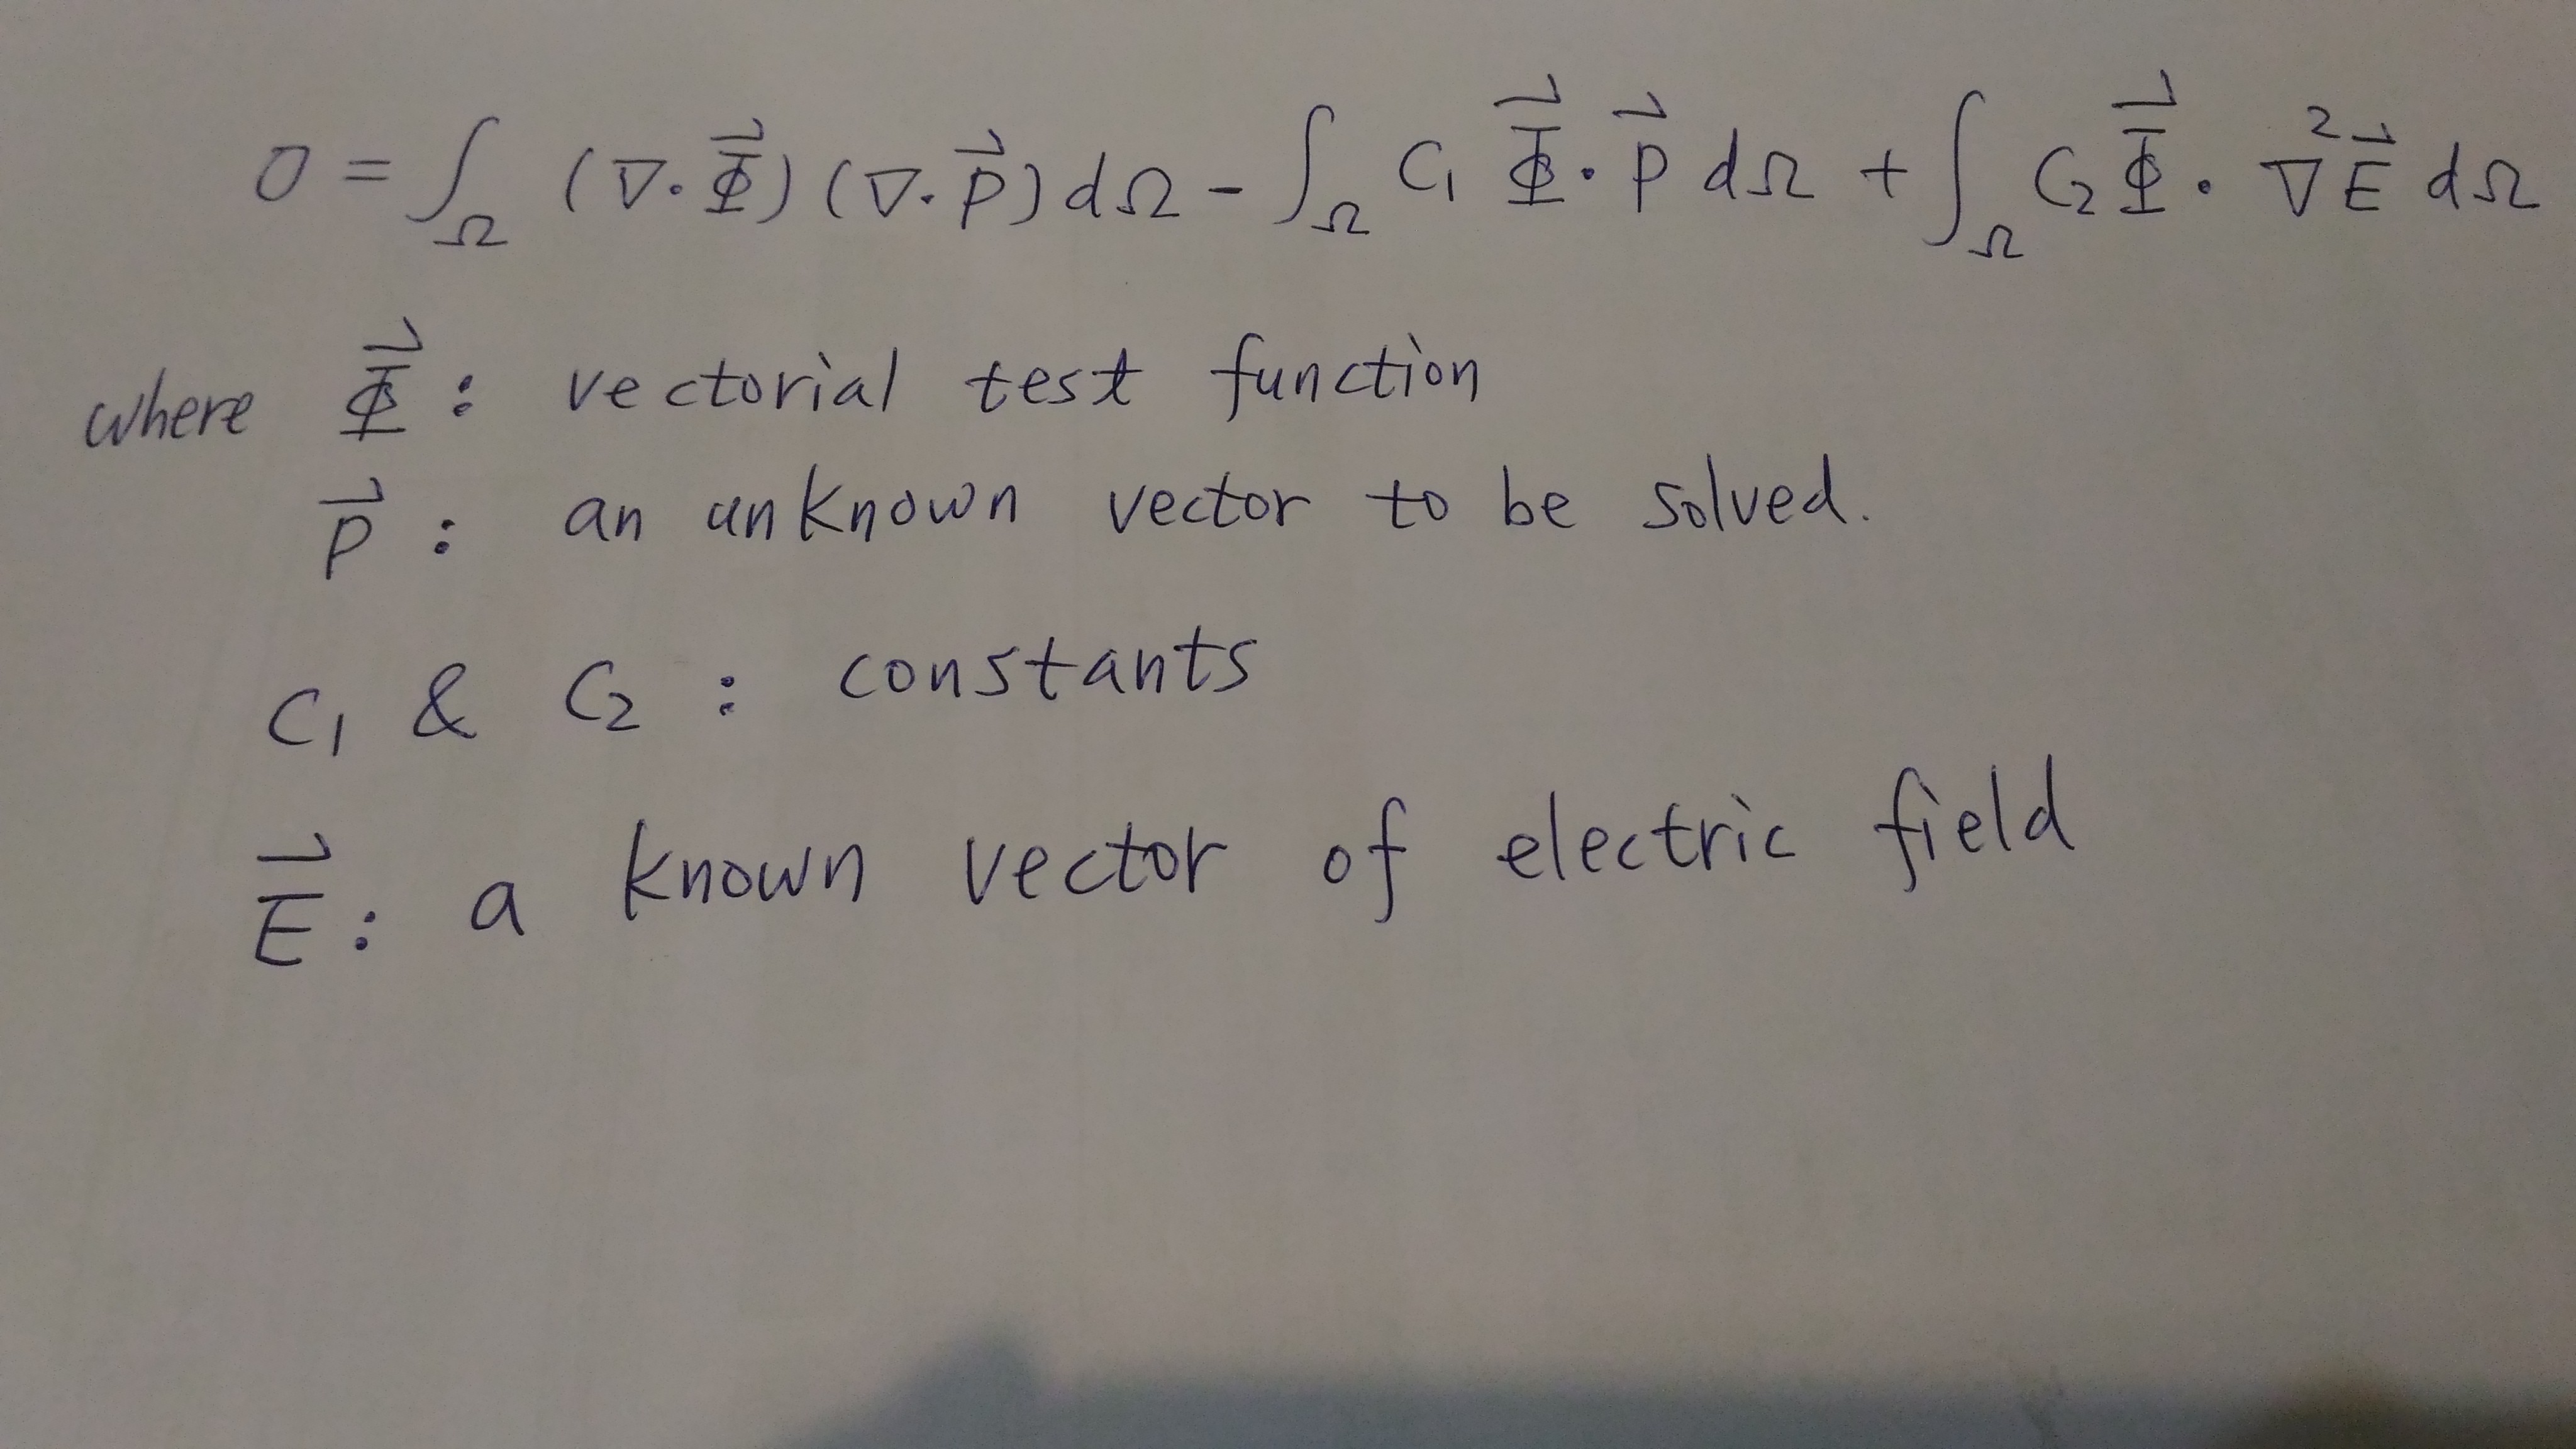 0 = ∫_Ω (∇·Φ⃗)(∇·P⃗) dΩ - ∫_Ω C₁ Φ⃗·P⃗ dΩ + ∫_Ω C₂ Φ⃗·∇²E⃗ dΩ
where Φ⃗ : vectorial test function
P⃗ : an unknown vector to be solved.
C₁ & C₂ : constants
E⃗ : a known vector of electric field